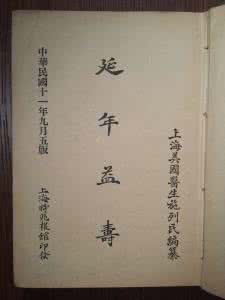 上海美國醫生施列民編纂
延年益壽
中華民國十一年九月五版
上海時兆報館印發